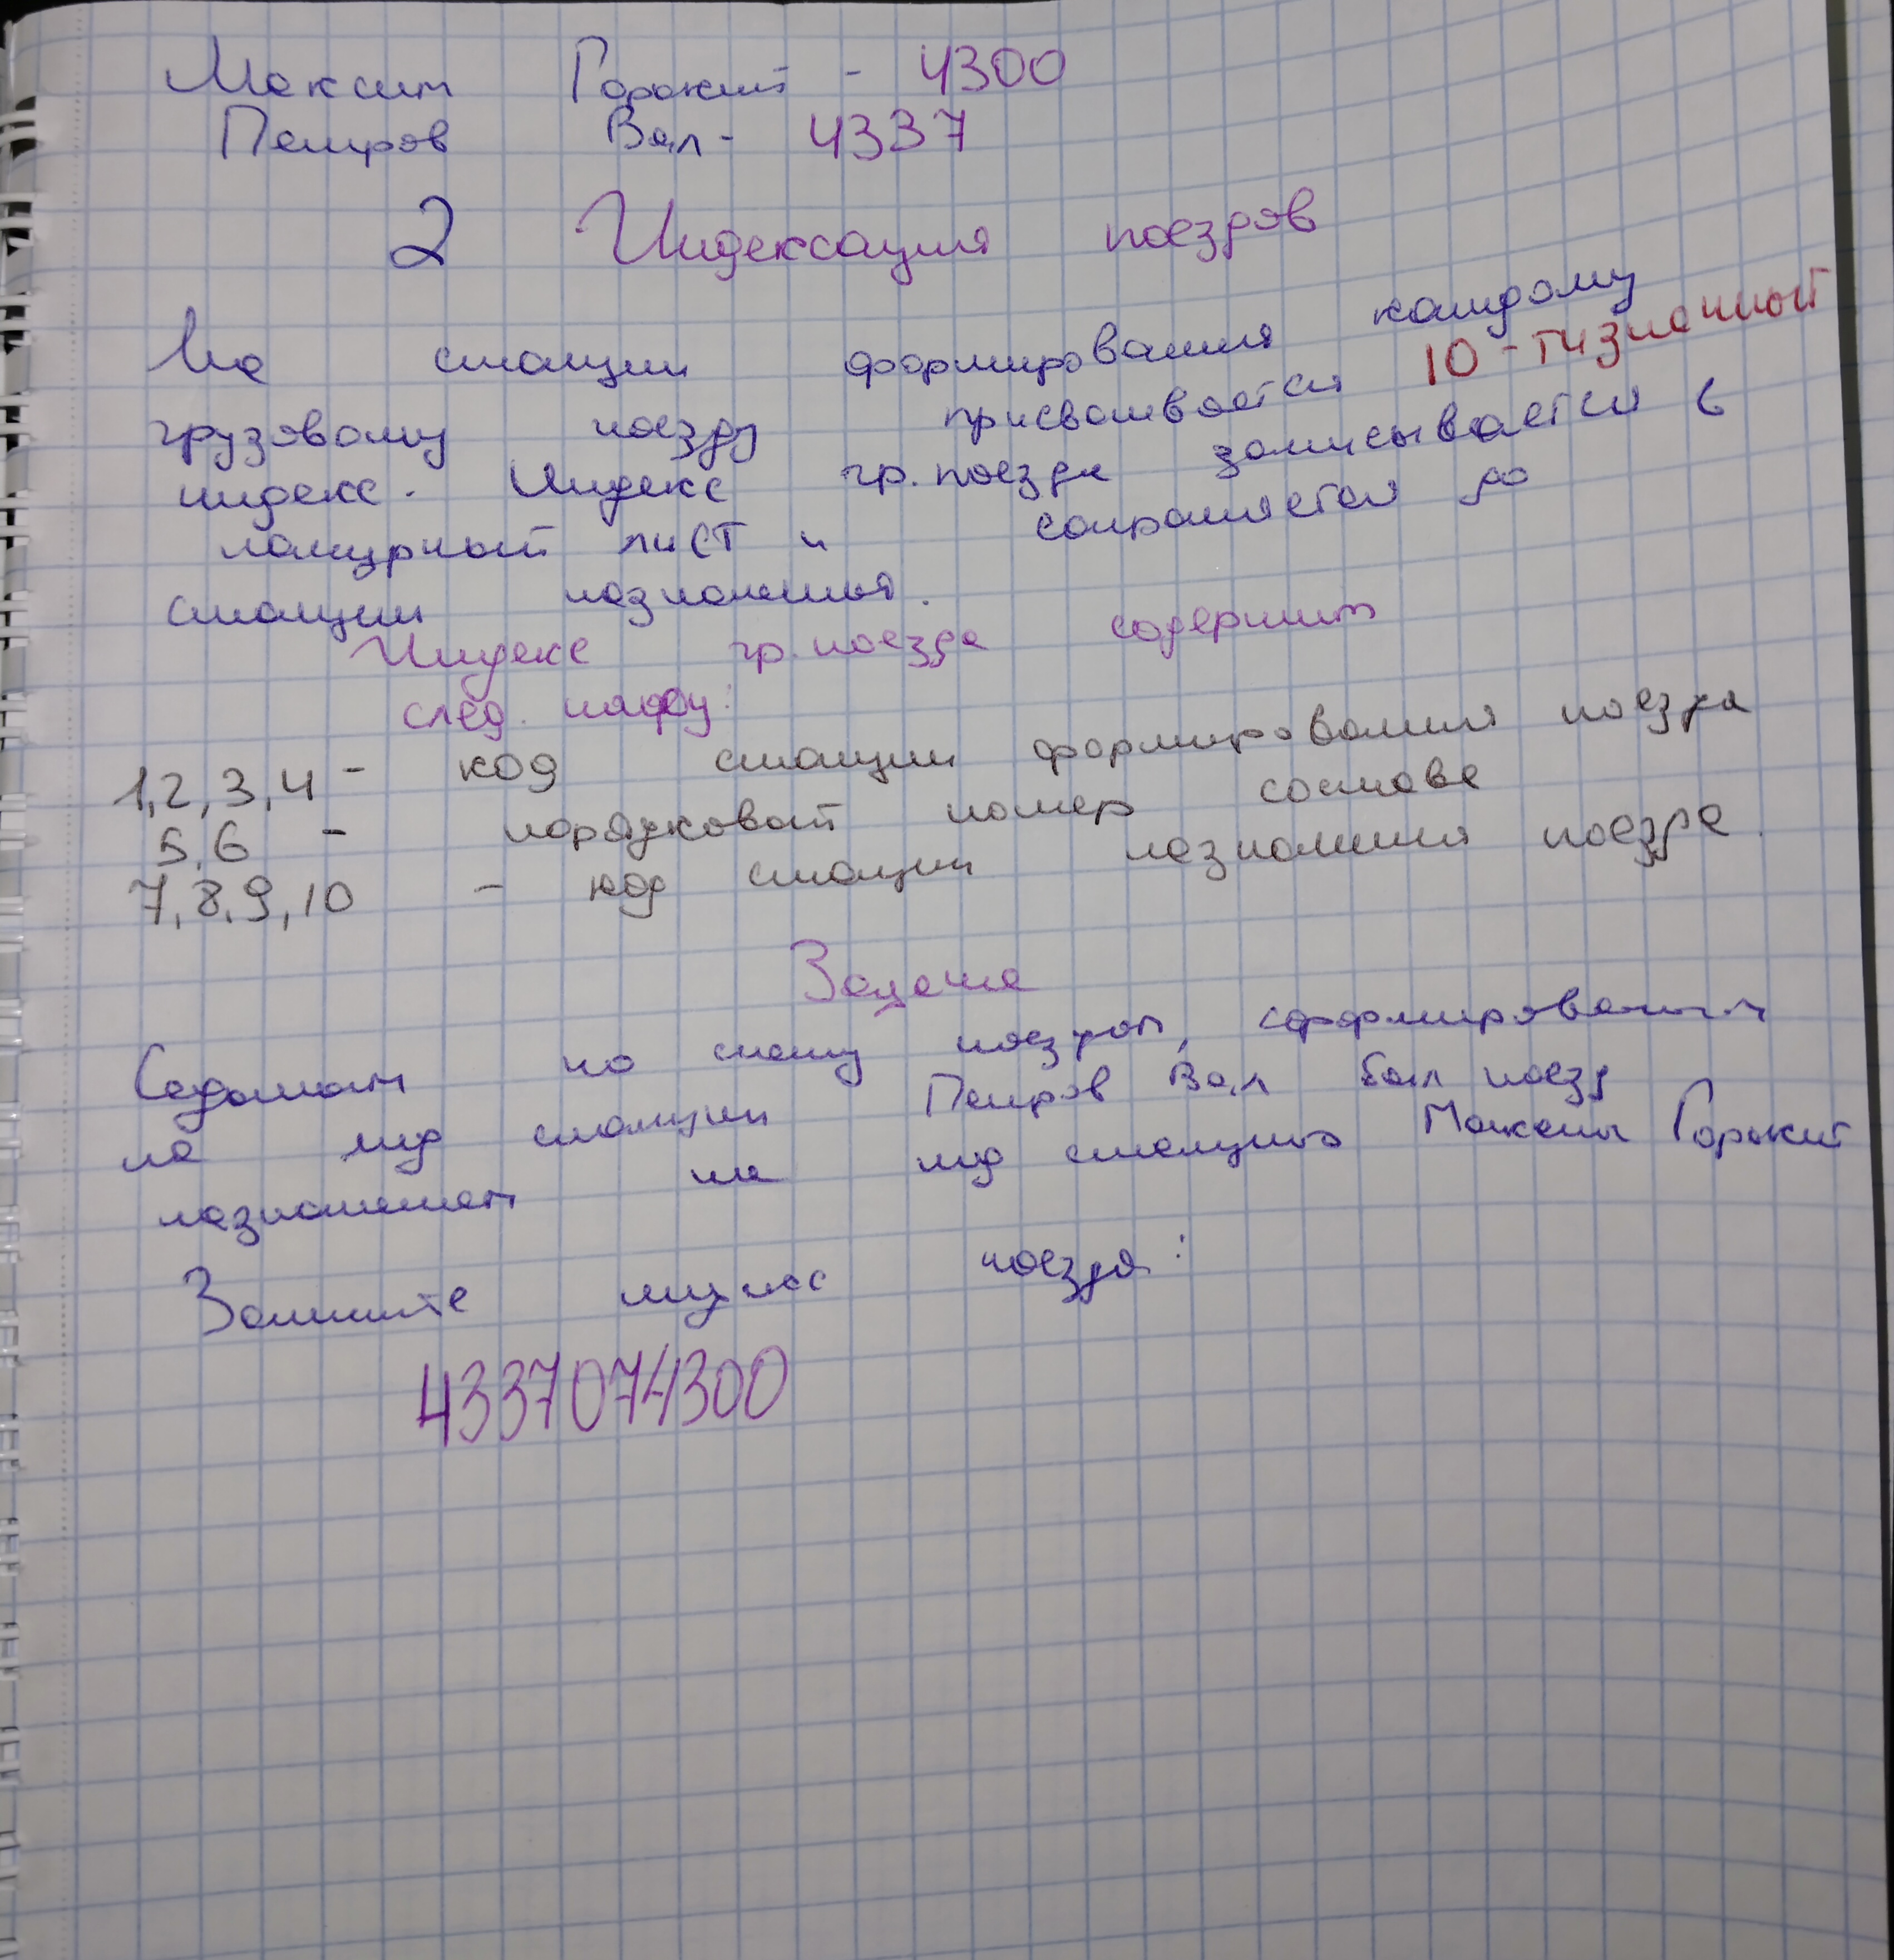 Максим Горький - 4300
Петров Вал - 4337
2 Индексация поездов
На станции формирования каждому
грузовому поезду присваивается 10-тизначный
индекс. Индекс гр. поезда записывается в
натурный лист и сохраняется до
станции назначения.
Индекс гр. поезда содержит
след. инфу:
1,2,3,4 - код станции формирования поезда
5,6 - порядковый номер состава
7,8,9,10 - код станции назначения поезда.
Задача
Седьмым по счету поездом, сформированным
на ж/д станции Петров Вал был поезд
назначением на ж/д станцию Максим Горький
Запишите индекс поезда:
4337074300